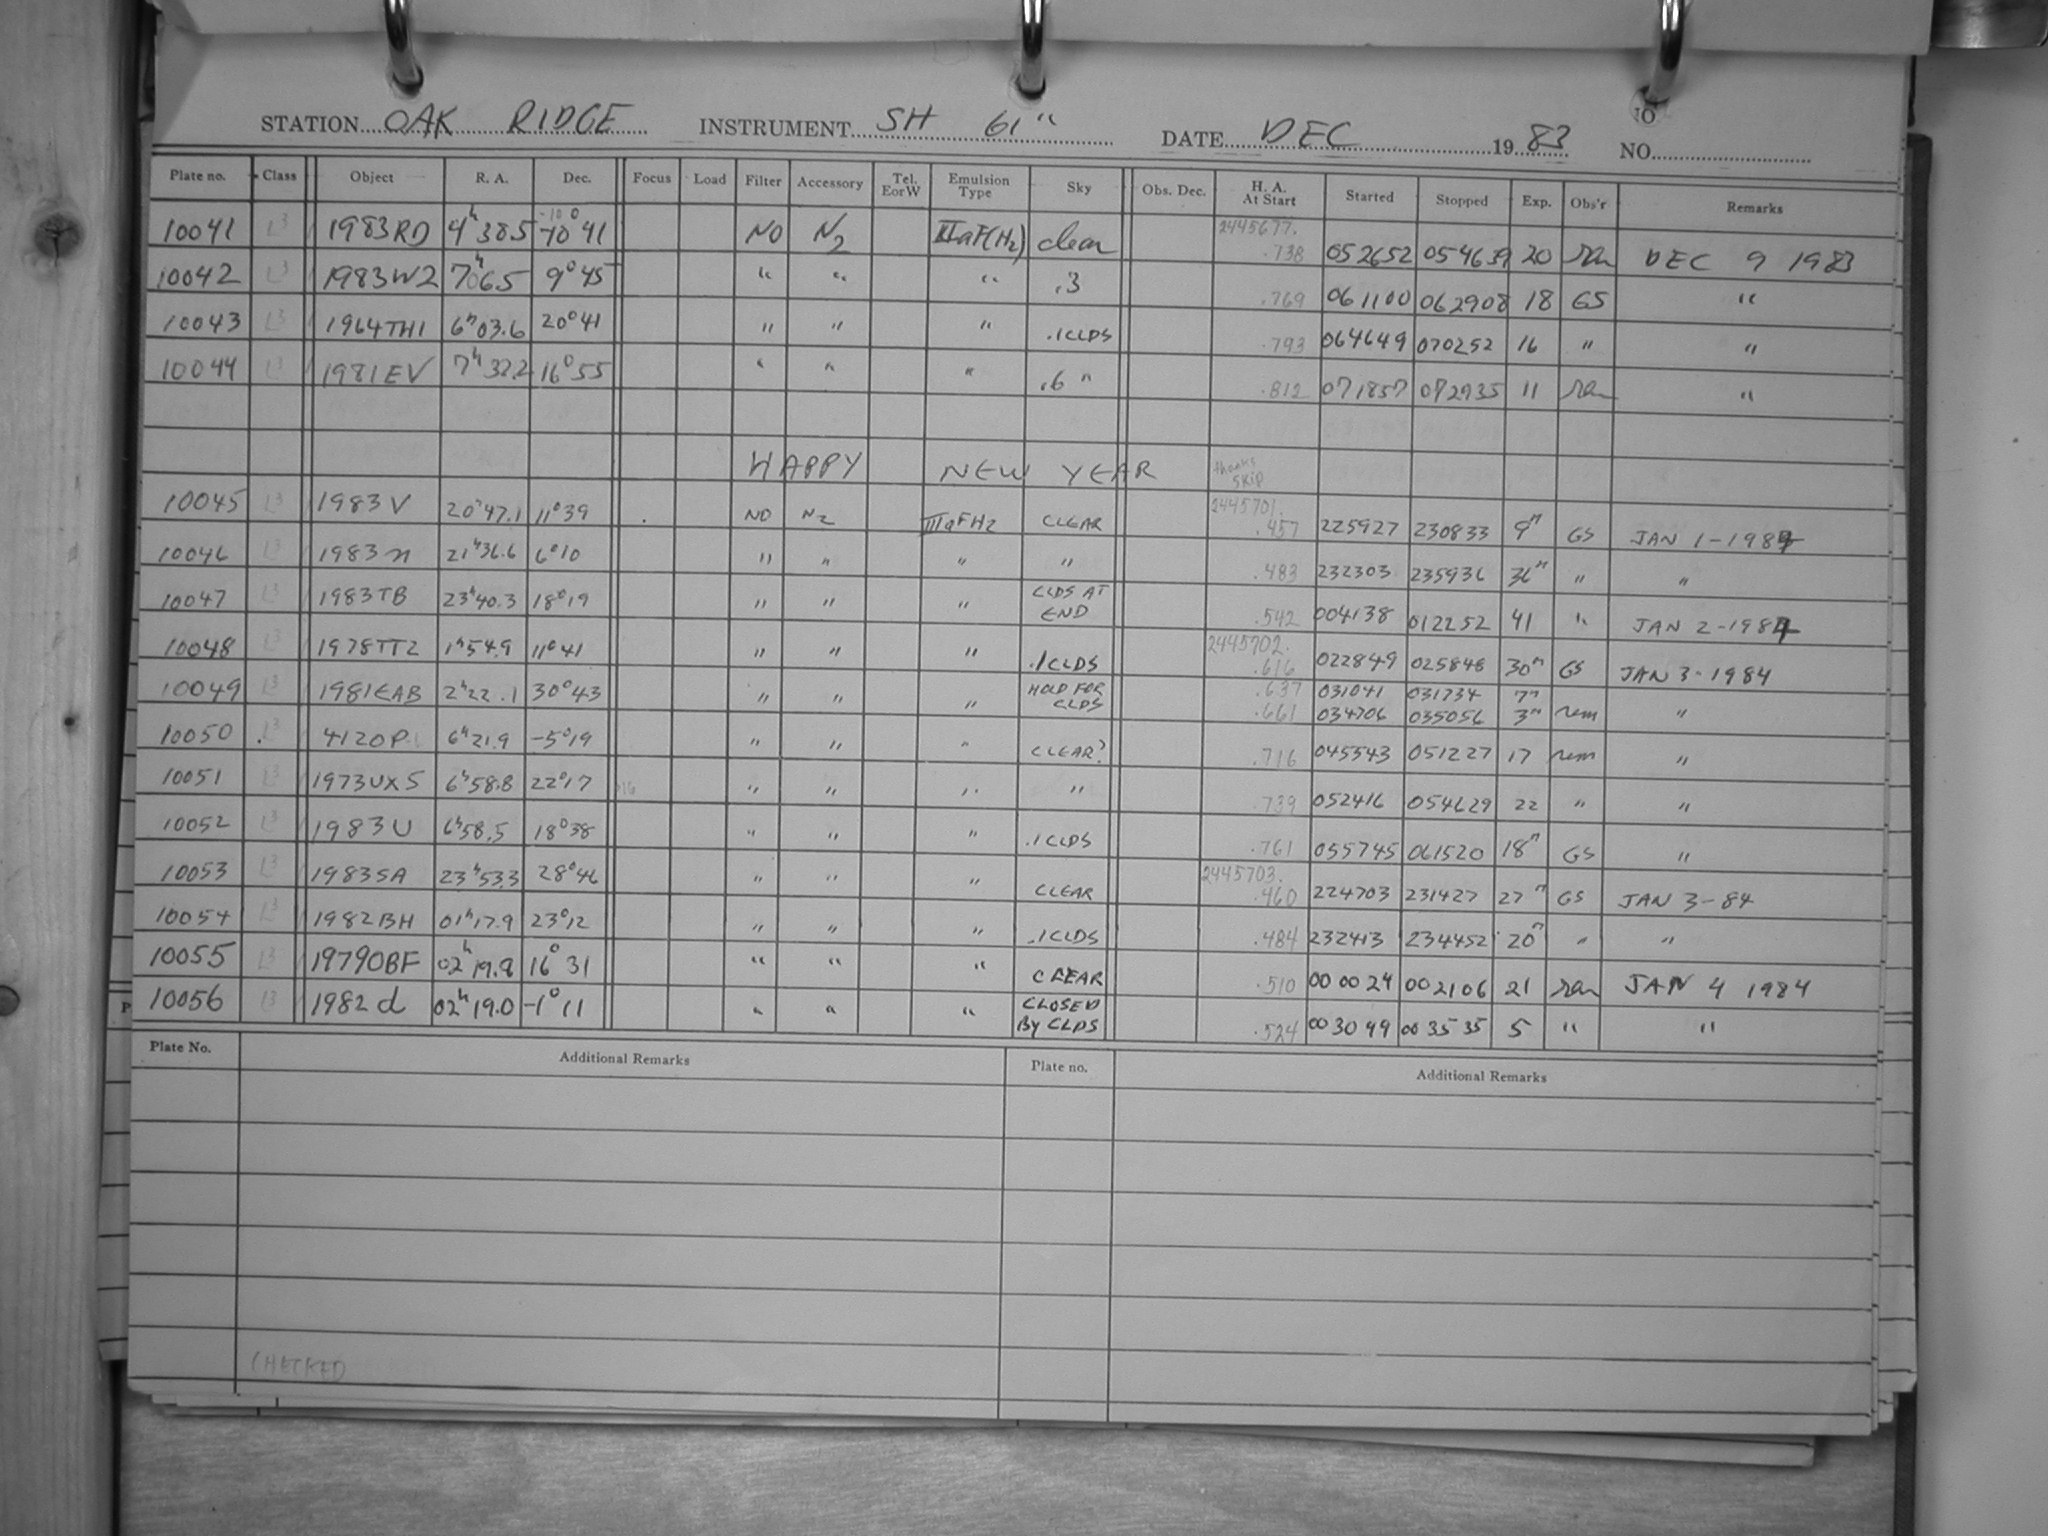 STATION OAK RIDGE INSTRUMENT SH 61" DATE DEC 1983 NO.
Plate no. Class Object R. A. Dec. Focus Load Filter Accessory Tel. EorW Emulsion Type Sky Obs. Dec. H. A. At Start Started Stopped Exp. Obs'r Remarks
10041 L3 1983RD 4h38.5 -10°41 NO N2 IIIaF(H2) clear 2445677. .738 052652 054639 20 DEC 9 1983
10042 L3 1983WZ 7h06.5 9°45 " " " .3 .769 061100 062908 18 GS "
10043 L3 1964TH1 6h03.6 20°41 " " " .1CLDS .793 064649 070252 16 " "
10044 L3 1981EV 7h32.2 16°55 " " " .6 " .812 071857 072935 11 "
HAPPY NEW YEAR thanks skip
10045 L3 1983V 20h47.1 11°39 NO N2 IIIaFH2 CLEAR 2445701. .457 225927 230833 9m GS JAN 1-1984
10046 L3 1983n 21h36.6 6°10 " " " " .483 232303 235936 36m " "
10047 L3 1983TB 23h40.3 18°19 " " " CLDS AT END .542 004138 012252 41 " JAN 2-1984
10048 L3 1978TT2 1h54.9 11°41 " " " .1CLDS 2445702. .616 022849 025848 30m GS JAN 3-1984
10049 L3 1981EAB 2h22.1 30°43 " " " HOLD FOR CLDS .637 031041 031734 7m
.661 034706 035056 3m rem "
10050 L3 4120P 6h21.9 -5°19 " " " CLEAR? .716 045543 051227 17 rem "
10051 L3 1973UX5 6h58.8 22°17 " " " " .739 052416 054629 22 " "
10052 L3 1983U 6h58.5 18°38 " " " .1CLDS .761 055745 061520 18m GS "
10053 L3 1983SA 23h53.3 28°46 " " " CLEAR 2445703. .460 224703 231427 27m GS JAN 3-84
10054 L3 1982BH 01h17.9 23°12 " " " .1CLDS .484 232413 234452 20m " "
10055 L3 1979OBF 02h19.8 16°31 " " " CLEAR .510 000024 002106 21 JAN 4 1984
10056 L3 1982d 02h19.0 -1°11 " " " CLOSED By CLDS .524 003049 003535 5 " "
Plate No. Additional Remarks Plate no. Additional Remarks
CHECKED